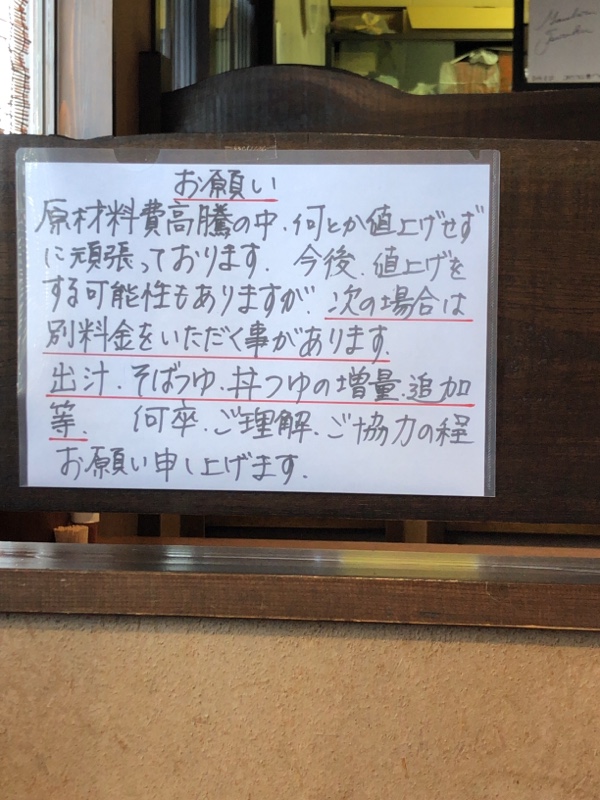 お願い
原材料費高騰の中、何とか値上げせず
に頑張っております。 今後、値上げを
する可能性もありますが、次の場合は
別料金をいただく事があります。
出汁、そばつゆ、丼つゆの増量、追加
等。 何卒、ご理解、ご協力の程
お願い申し上げます。